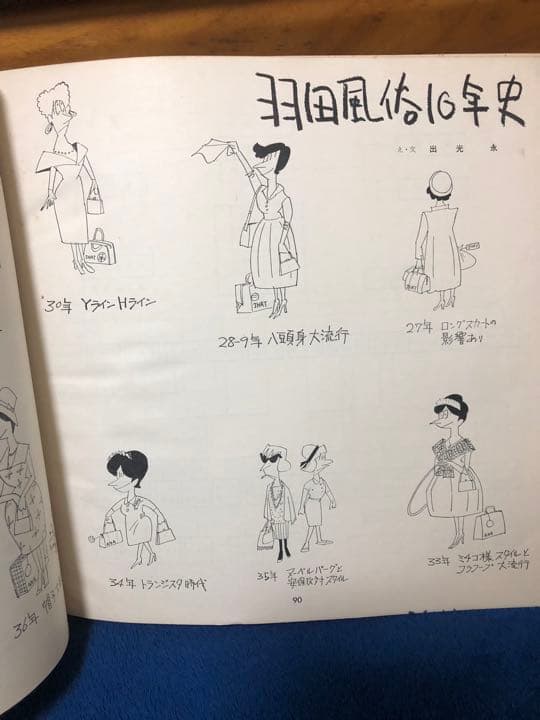 羽田風俗10年史
え・文 出光永
27年 ロングスカートの
影響あり
28-9年 八頭身大流行
'30年 YラインHライン
33年 ミチコ様スタイルと
フラフープ大流行
35年 ヌーベルバーグと
安保
スタイル
34年 トランジスタ時代
36年
90